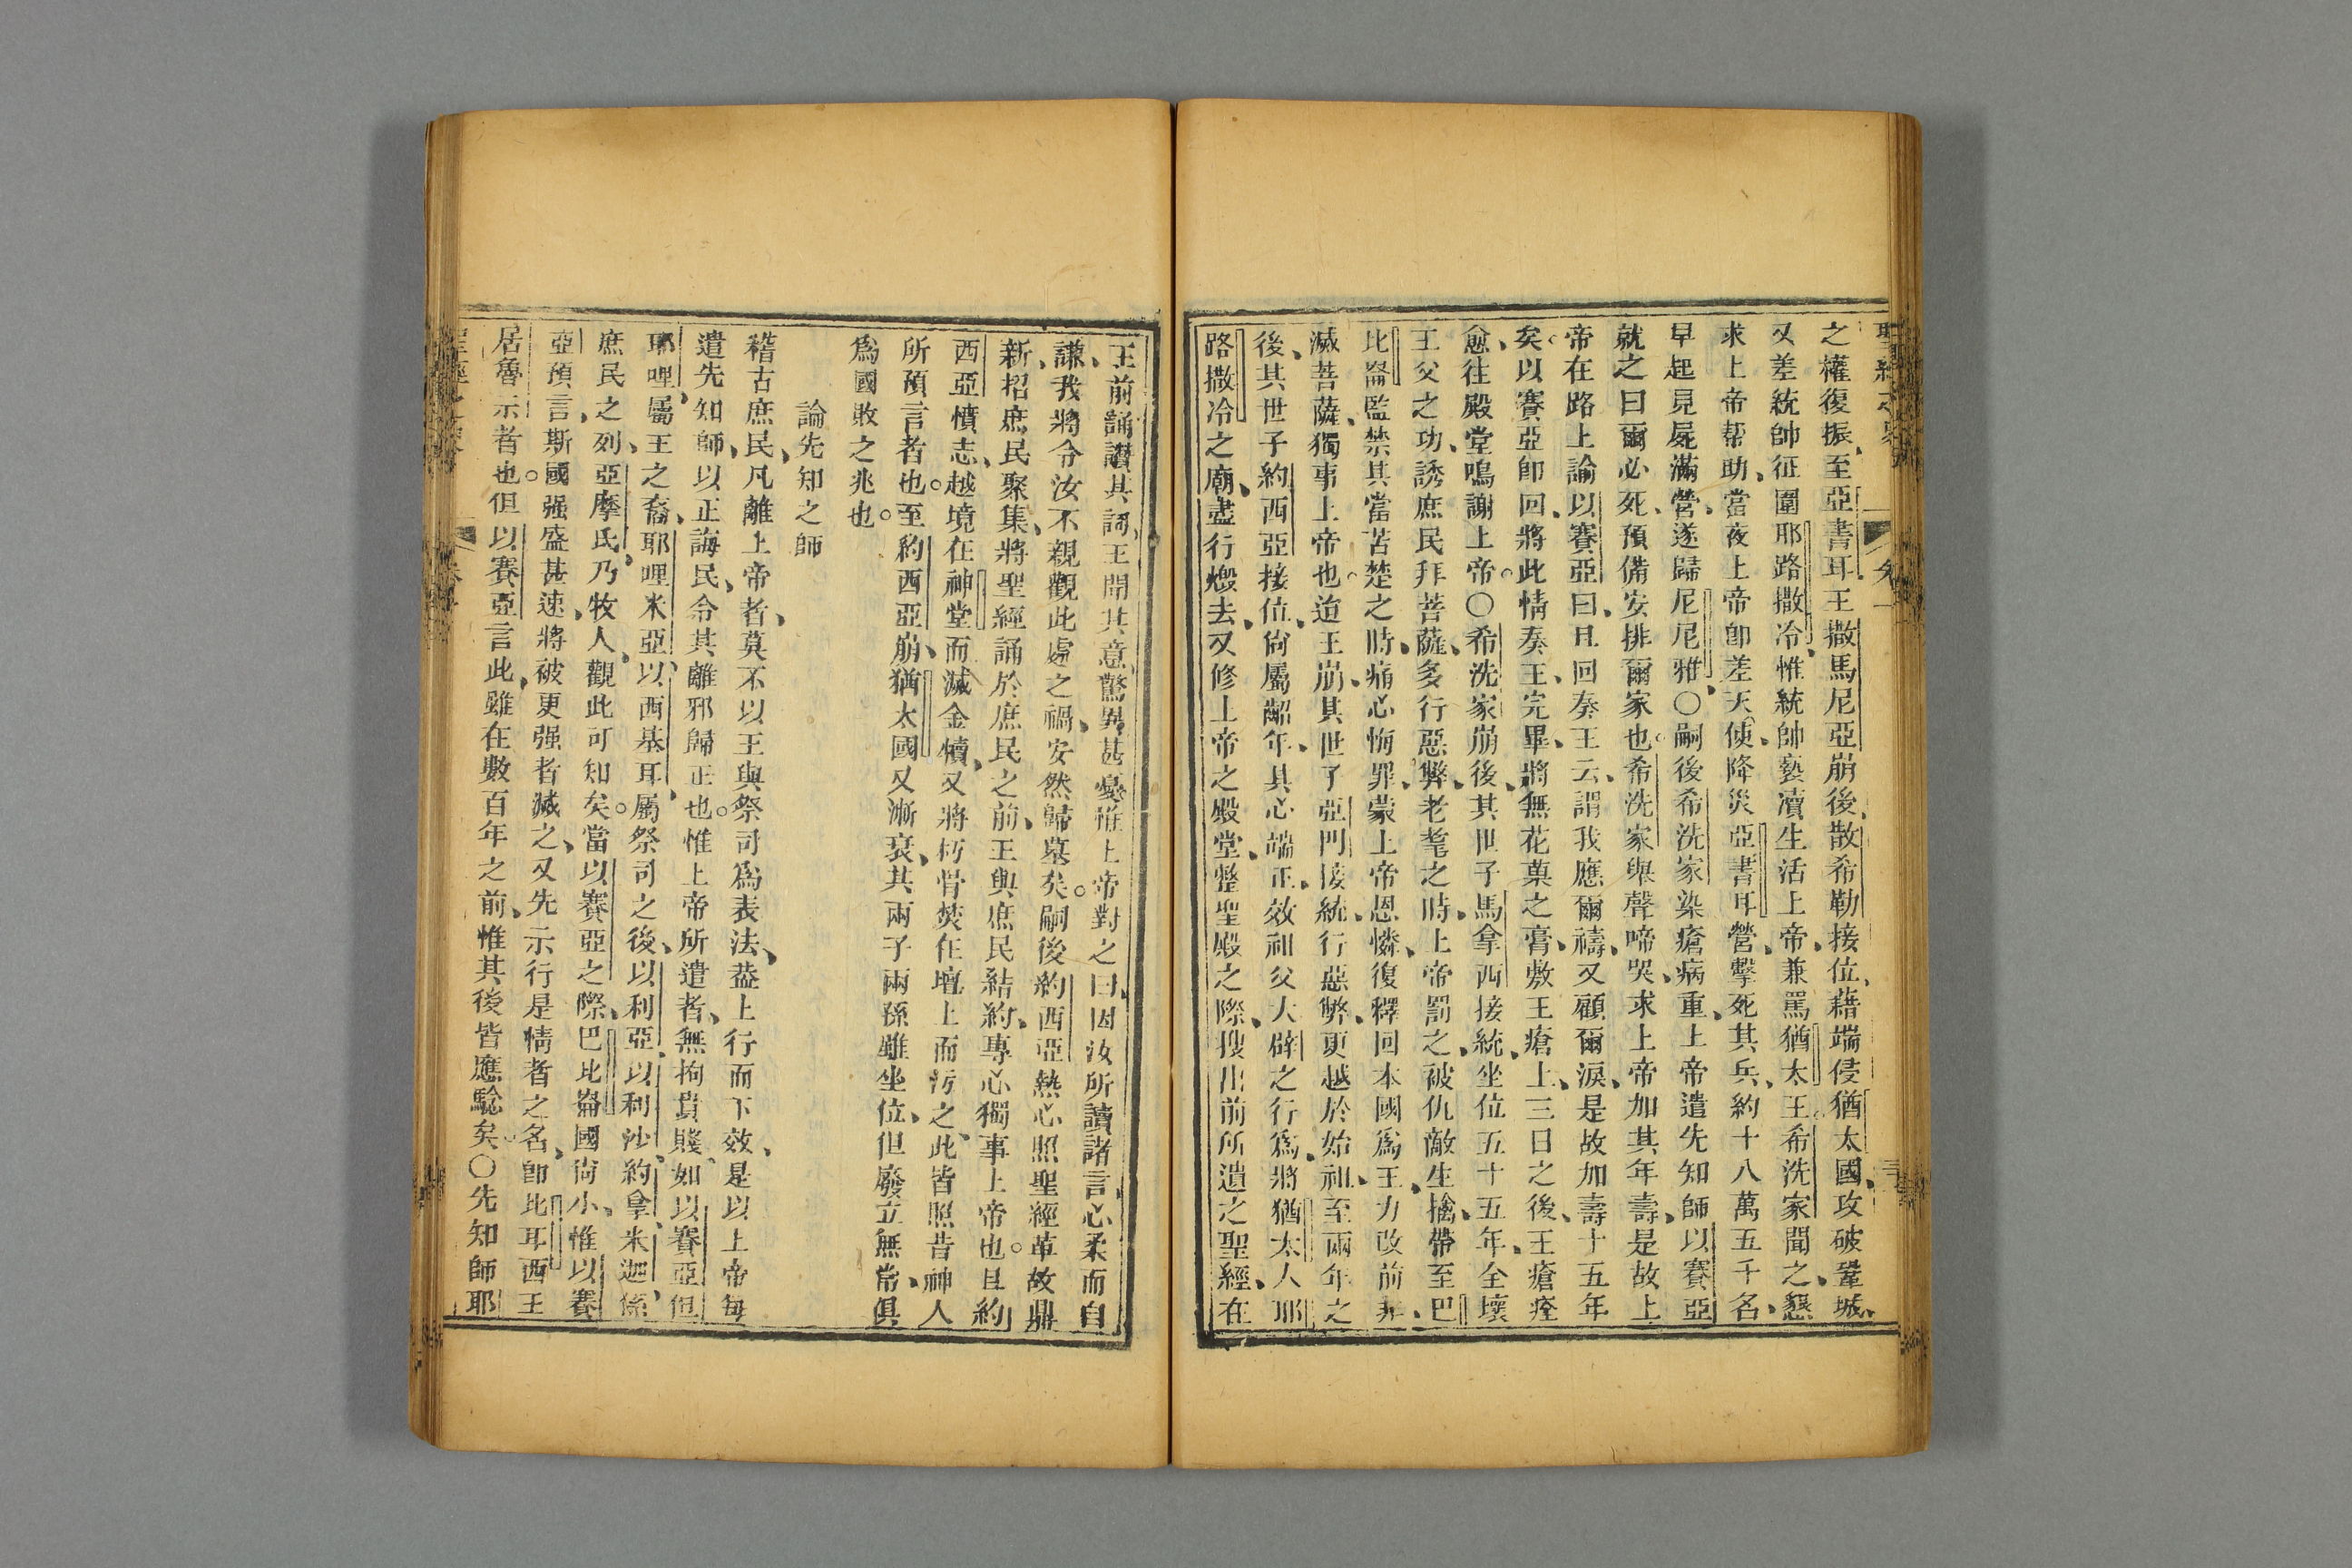 之權復振、至亞書耳王撒馬尼亞崩後、散希勒接位、藉端侵猶太國、攻破鞏城、
又差統帥征圍耶路撒冷、惟統帥褻瀆生活上帝、兼罵猶太王希洗家聞之、懇
求上帝帮助、當夜上帝卽差天使、降災亞書耳營、擊死其兵、約十八萬五千名、
早起見屍滿營、遂歸尼尼雅、○嗣後希洗家染瘡病重、上帝遣先知師以賽亞
就之曰、爾必死、預備安排爾家也。希洗家舉聲啼哭、求上帝加其年壽、是故上
帝在路上論以賽亞曰、且回奏王云、謂我應爾禱、又顧爾淚、是故加壽十五年
矣。以賽亞卽回、將此情奏王、完畢、將無花菓之膏、敷王瘡上、三日之後、王瘡痊
愈、往殿堂鳴謝上帝。○希洗家崩後、其世子馬拿西接統、坐位五十五年、全壞
王父之功、誘庶民拜菩薩、多行惡弊、老耄之時、上帝罰之、被仇敵生擒、帶至巴
比崙監禁、其當苦楚之時、痛心悔罪、蒙上帝恩憐、復釋回本國爲王、力改前非、
滅菩薩、獨事上帝也。迨王崩、其世子亞門接統、行惡弊、更越於始祖、至兩年之
後、其世子約西亞接位、尙屬齠年、其心端正、效祖父大辟之行爲、將猶太人耶
路撒冷之廟、盡行燬去、又修上帝之殿堂、整聖殿之際、搜出前所遺之聖經、在
王前誦讀其詞、王聞其意、驚異甚憂、惟上帝對之曰、因汝所讀諸言、心柔而自
謙、我將令汝不親觀此處之禍、安然歸墓矣。嗣後約西亞熱心照聖經革故鼎
新、招庶民聚集、將聖經誦於庶民之前、王與庶民結約、專心獨事上帝也。且約
西亞憤志、越境在神堂而滅金犢、又將朽骨焚在壇上而污之、此皆照昔神人
所預言者也。至約西亞崩、猶太國又漸衰、其兩子兩孫雖坐位、但廢立無常、俱
爲國敗之兆也。
論先知之師
稽古庶民、凡離上帝者、莫不以王與祭司爲表法、葢上行而下效、是以上帝每
遣先知師、以正誨民、令其離邪歸正也。惟上帝所遣者、無拘貴賤、如以賽亞但
耶哩、屬王之裔、耶哩米亞、以西基耳、屬祭司之後、以利亞、以利沙、約拿、米迦、係
庶民之列、亞摩氏、乃牧人、觀此可知矣。當以賽亞之際、巴比崙國尙小、惟以賽
亞預言、斯國强盛甚速、將被更强者滅之、又先示行是情者之名、卽比耳西王
居魯示者也。但以賽亞言此、雖在數百年之前、惟其後皆應騐矣。○先知師耶